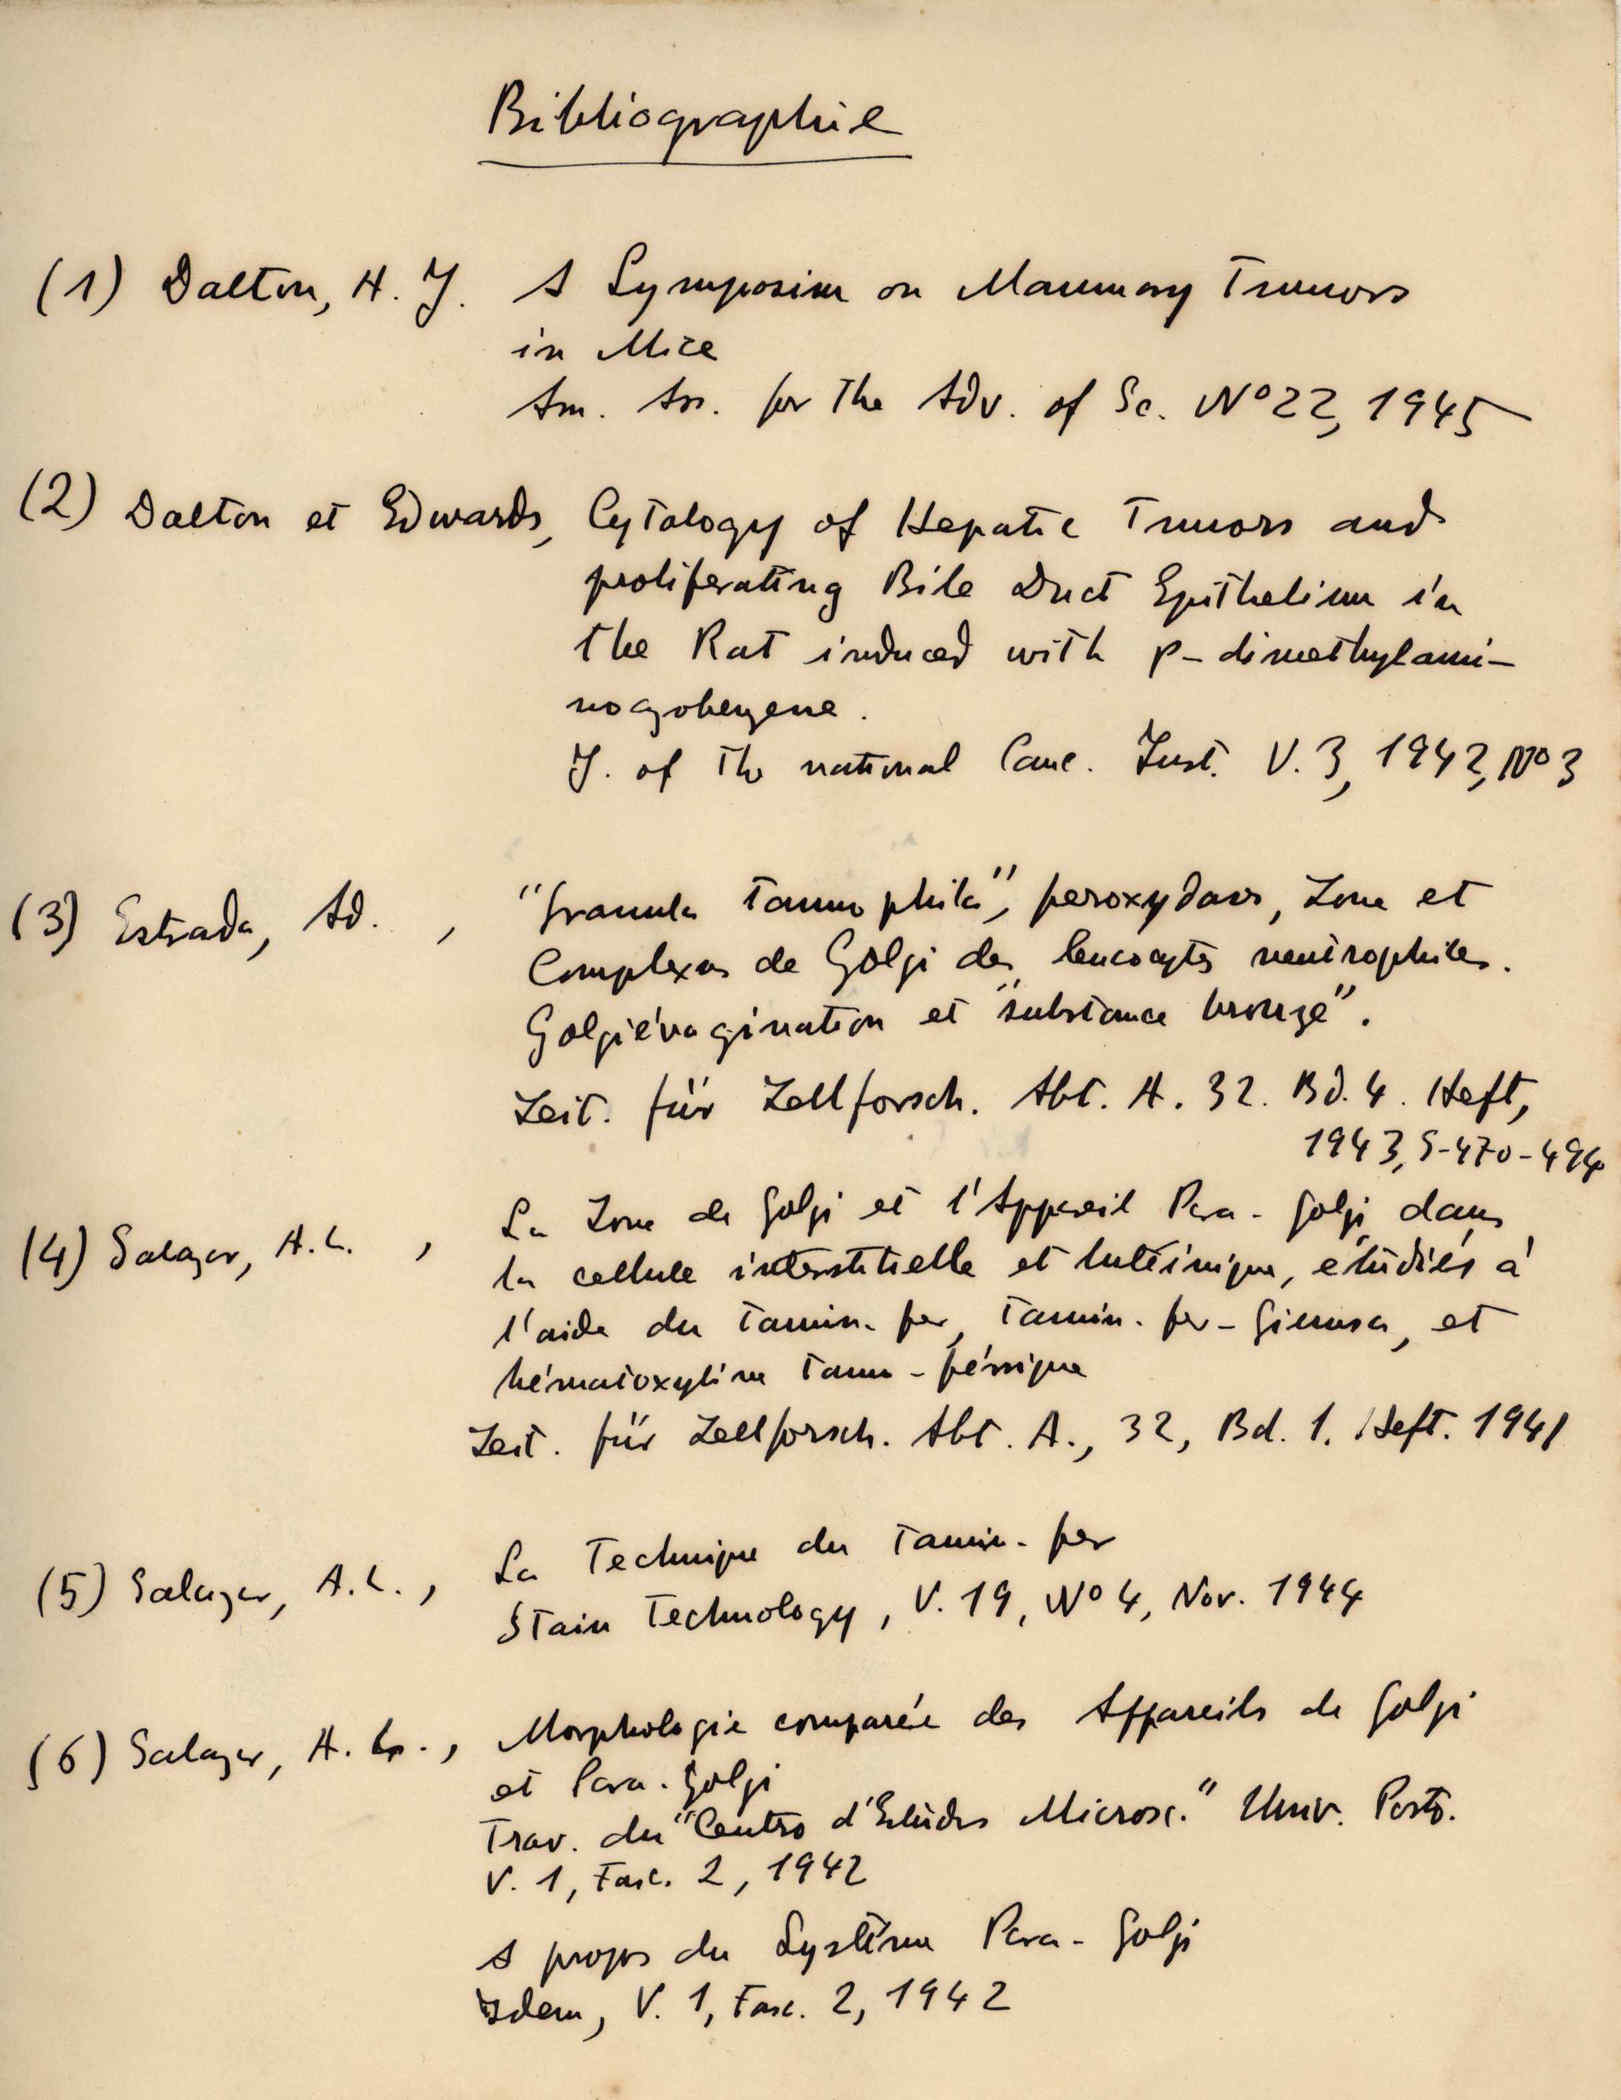 Bibliographie
(1) Dalton, A. J. A Symposium on Mammary Tumors
in Mice
Am. Ass. for the Adv. of Sc. Nº 22, 1945
(2) Dalton et Edwards, Cytology of Hepatic Tumors and
proliferating Bile Duct Epithelium in
the Rat induced with p-dimethylami-
noazobenzene.
J. of the national Canc. Inst. V. 3, 1942, Nº 3
(3) Estrada, Ad. , "Granula tannophila", peroxydases, Zone et
Complexes de Golgi des leucocytes neutrophiles.
Golgiévagination et "substance bronze".
Zeit. für Zellforsch. Abt. A. 32. Bd. 4. Heft,
1943, S-470-494
(4) Salazar, A. L. , La Zone de Golgi et l'Appareil Para-Golgi dans
la cellule interstitielle et lutéinique, étudiés à
l'aide du tannin-fer, tannin-fer-Giemsa, et
hématoxyline tanno-férrique
Zeit. für Zellforsch. Abt. A., 32, Bd. 1. Heft. 1941
(5) Salazar, A. L. , La Technique du tannin-fer
Stain Technology, V. 19, Nº 4, Nov. 1944
(6) Salazar, A. L. , Morphologie comparée des Appareils de Golgi
et Para-Golgi
Trav. du "Centro d'Estudos Microsc." Univ. Porto.
V. 1, Fasc. 2, 1942
A propos du Système Para-Golgi
Idem, V. 1, Fasc. 2, 1942